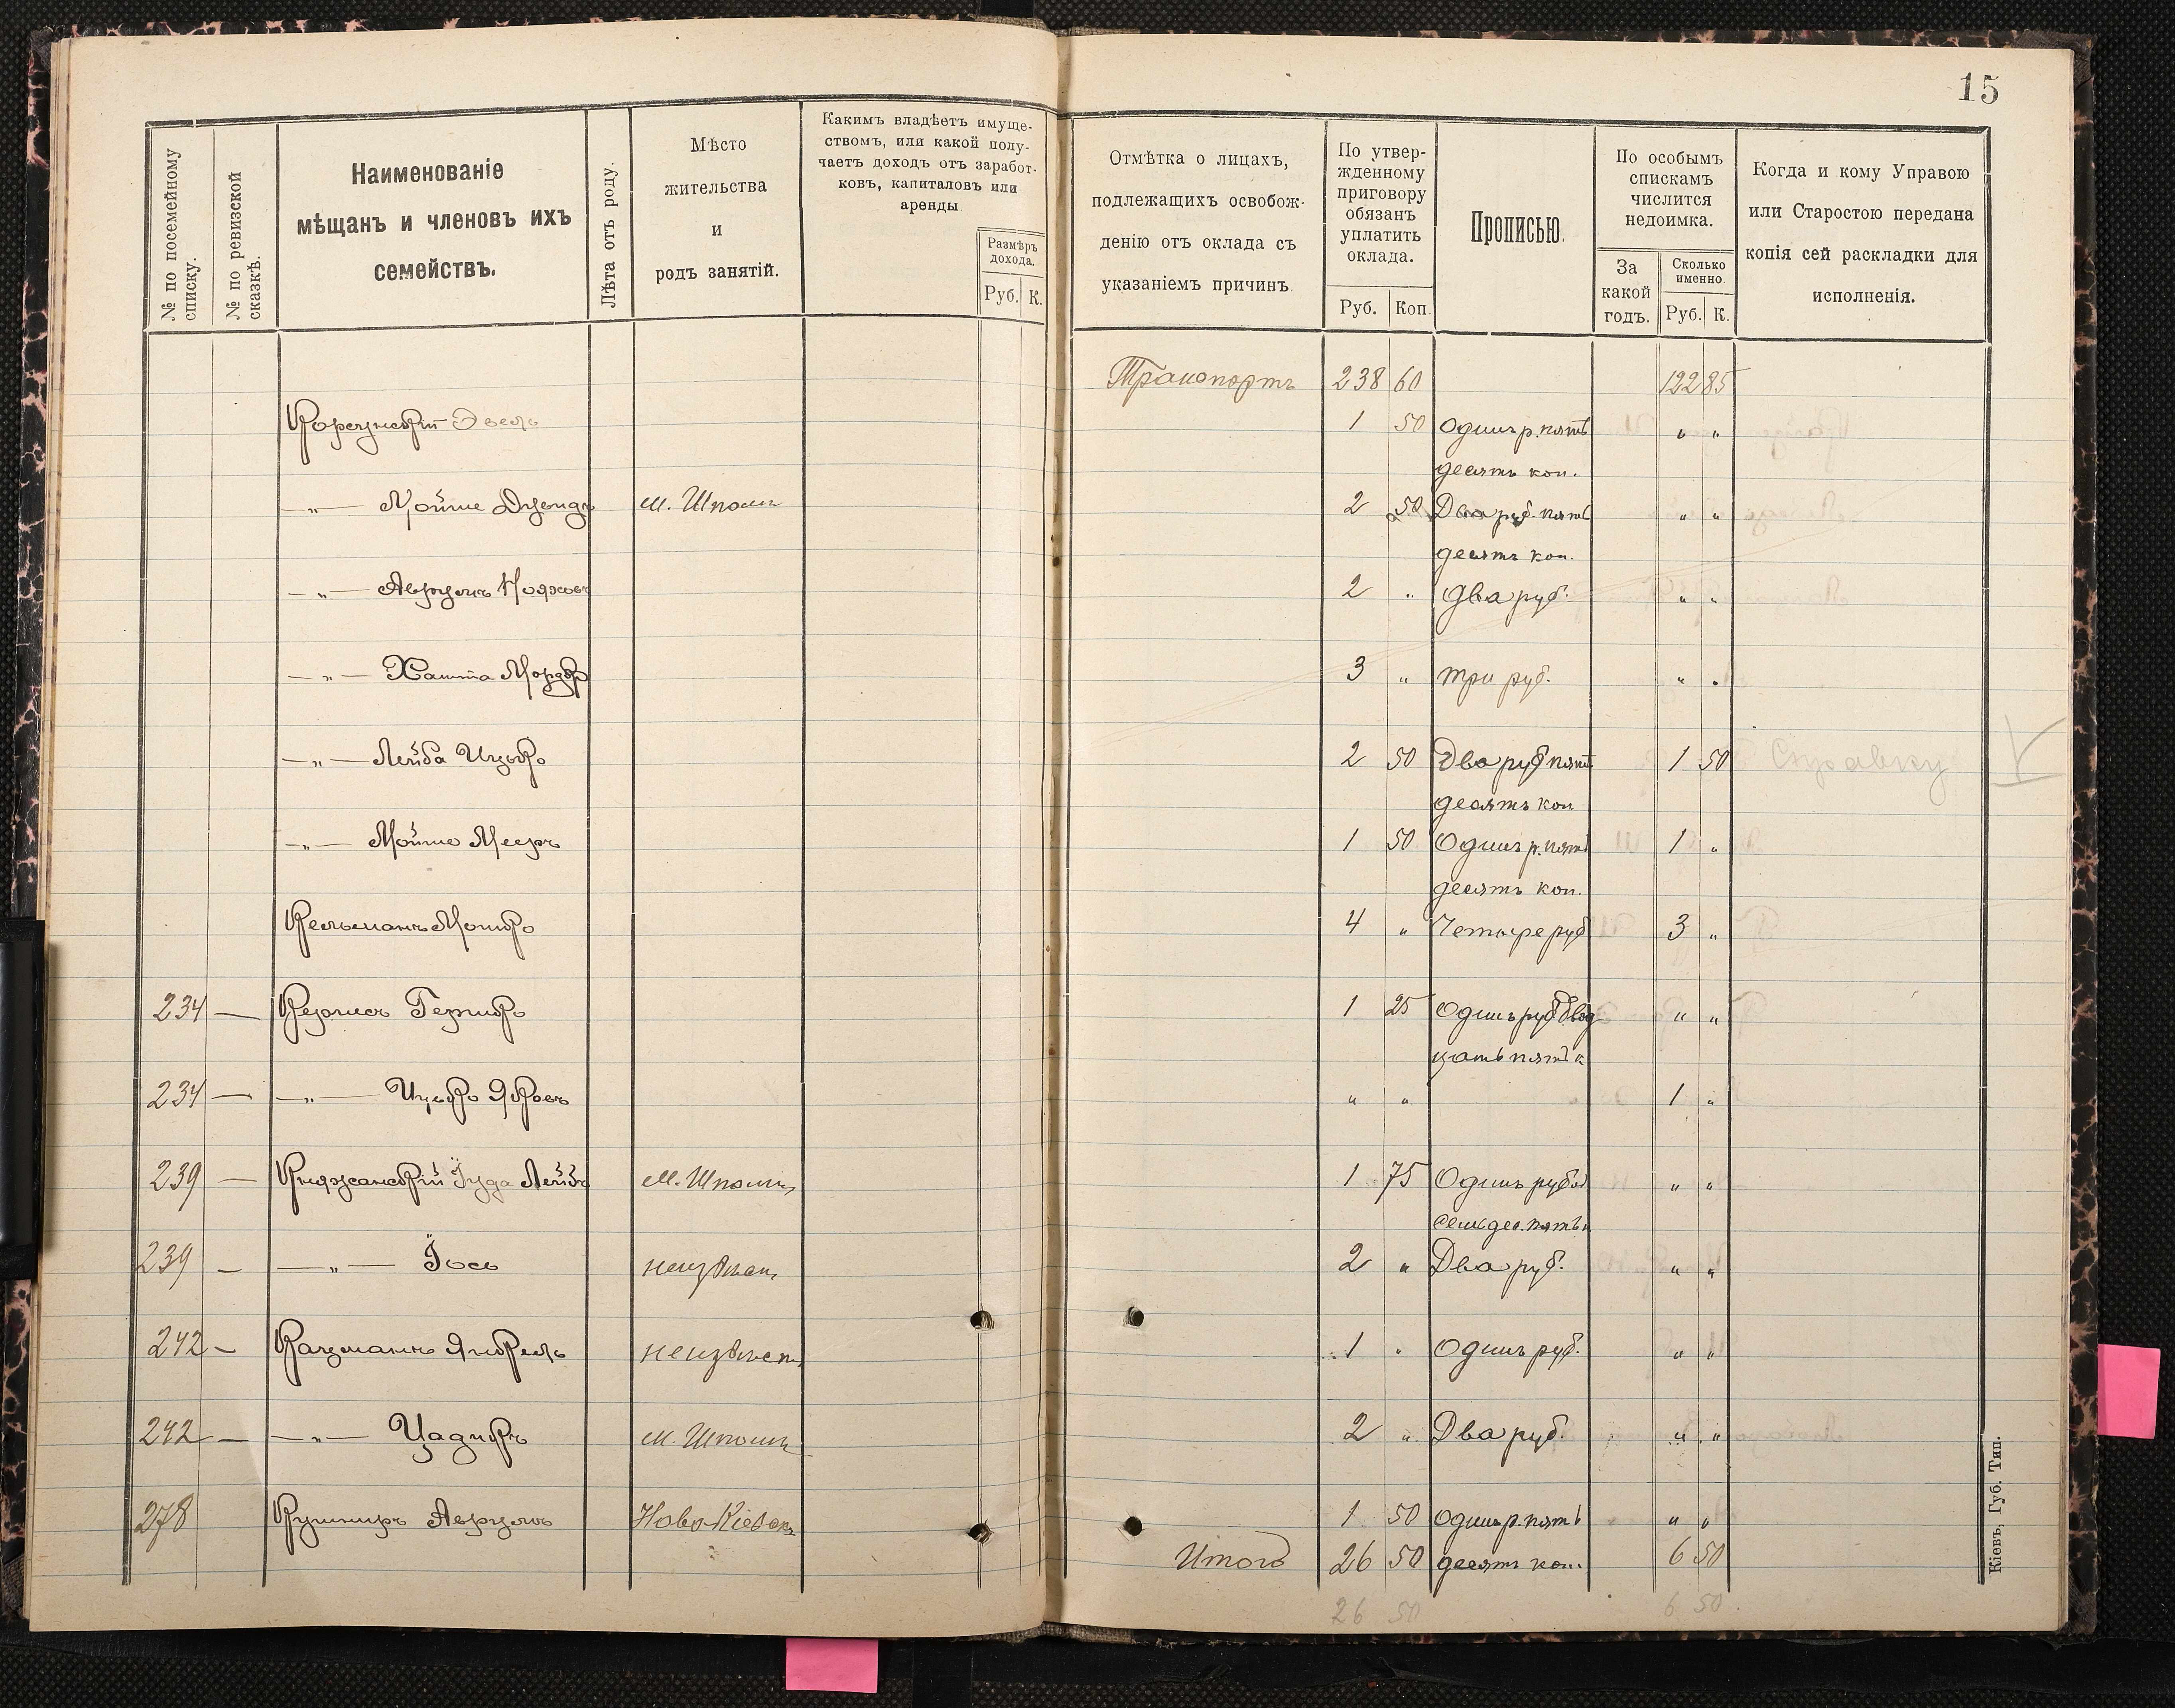 15
№ по посемейному списку.
№ по ревизской сказкѣ.
Наименованіе
мѣщанъ и членовъ ихъ
семействъ.
Лѣта отъ роду.
Мѣсто
жительства
и
родъ занятій.
Какимъ владѣетъ имуще-
ствомъ, или какой полу-
чаетъ доходъ отъ заработ-
ковъ, капиталовъ или
аренды
Размѣръ
дохода.
Руб. К.
Отмѣтка о лицахъ,
подлежащихъ освобож-
денію отъ оклада съ
указаніемъ причинъ.
По утвер-
жденному
приговору
обязанъ
уплатить
оклада.
Руб. Коп.
Прописью.
По особымъ
спискамъ
числится
недоимка.
За
какой
годъ.
Сколько
именно.
Руб. К.
Когда и кому Управою
или Старостою передана
копія сей раскладки для
исполненія.
Транспортъ 238 60 122 85
Корсунскій Эвель 1 50 Одинъ р. пять „ „
десять коп.
—„— Мойше Дувидъ м. Шпола 2 50 Два руб. пять „ „
десять коп.
—„— Аврумъ 2 „ Два руб. „ „
—„— Мордко 3 „ три руб. „ „
—„— Лейба Ицько 2 50 Два руб пять 1 50 Справку
десять коп
—„— Мойше Мееръ 1 50 Одинъ р. пять 1 „
десять коп.
Кельманъ Мошко 4 „ Четыре руб 3 „
234 — Гершко 1 25 Одинъ руб двад „ „
цать пять к
234 — —„— Ицько Яковъ „ „ 1 „
239 — Княжанскій Іуда Лейба м. Шпола 1 75 Одинъ руб „ „
семьдес. пять к
239 — —„— Іось неизвѣстн 2 „ Два руб. „ „
242 — Кацманъ Янкель неизвѣстн 1 „ Одинъ руб. „ „
242 — —„— Цадикъ м. Шпола 2 „ Два руб. „ „
278 Кушниръ Аврумъ Ново-Кіевск 1 50 Одинъ р. пять „ „
Итого 26 50 десять коп. 6 50
26 50 6 50
Кіевъ, Губ. Тип.